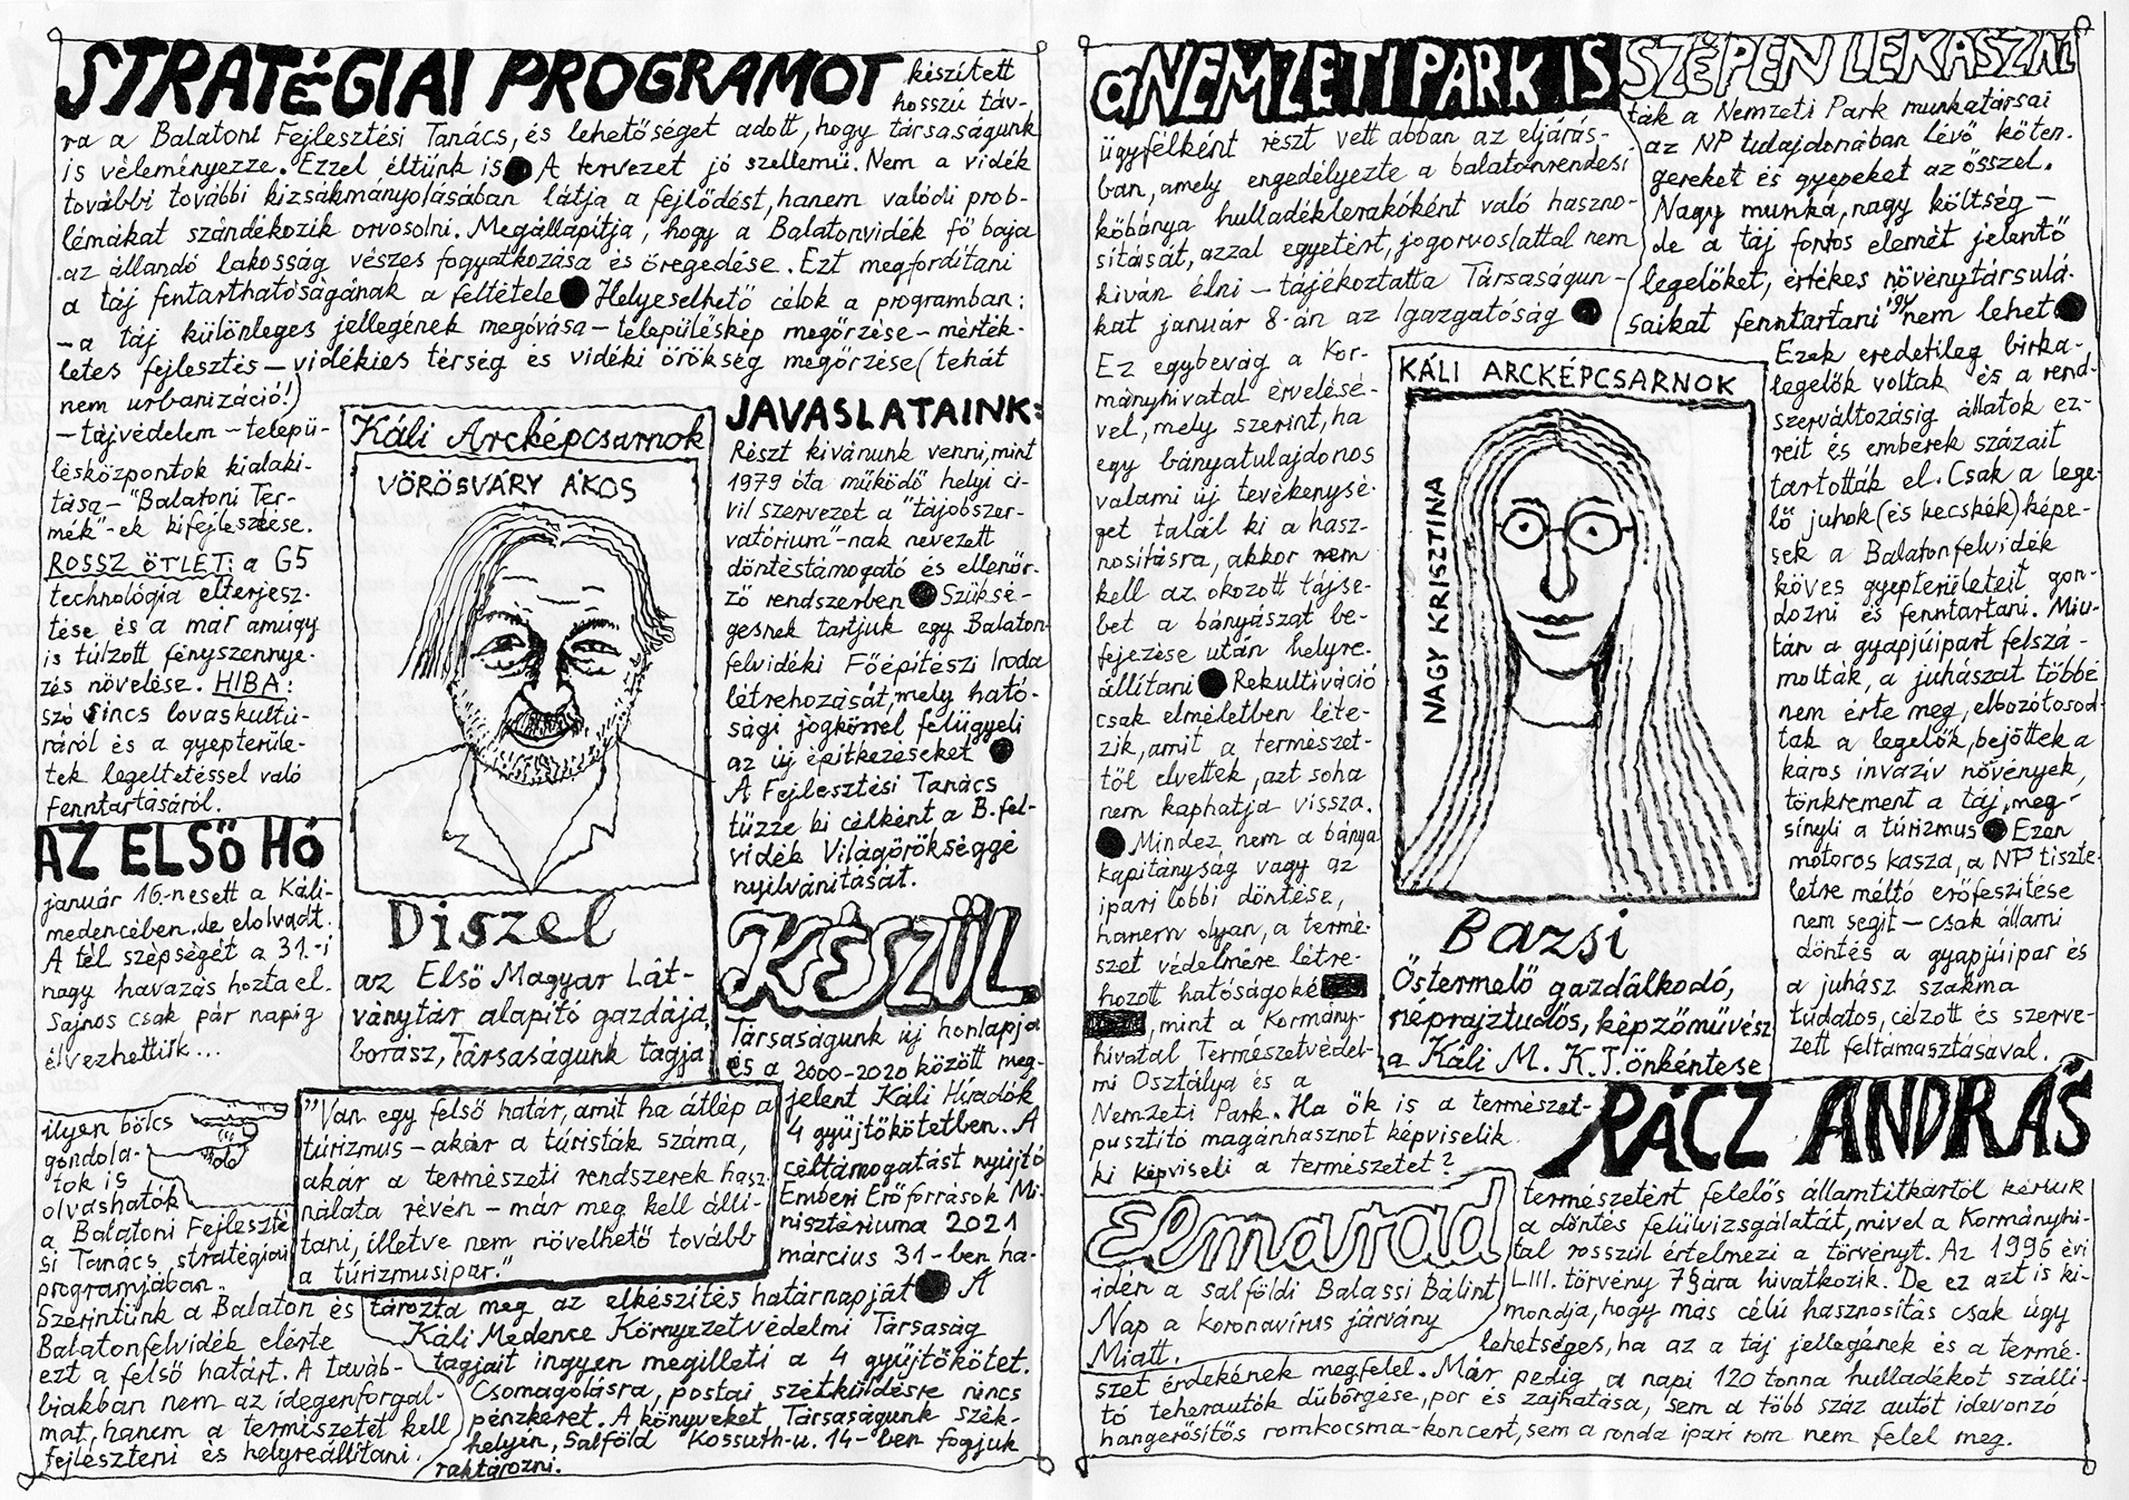 STRATÉGIAI PROGRAMOT készített
hosszú táv-
ra a Balatoni Fejlesztési Tanács, és lehetőséget adott, hogy társaságunk
is véleményezze. Ezzel éltünk is ● A tervezet jó szellemű. Nem a vidék
további további kizsákmányolásában látja a fejlődést, hanem valódi prob-
lémákat szándékozik orvosolni. Megállapítja, hogy a Balatonvidék fő baja
az állandó lakosság vészes fogyatkozása és öregedése. Ezt megfordítani
a táj fentarthatóságának a feltétele ● Helyeselhető célok a programban:
– a táj különleges jellegének megóvása – településkép megőrzése – mérték-
letes fejlesztés – vidékies térség és vidéki örökség megőrzése (tehát
nem urbanizáció!)
– tájvédelem – telepü-
lésközpontok kialakí-
tása – "Balatoni Ter-
mék"-ek kifejlesztése.
ROSSZ ÖTLET: a G5
technológia elterjesz-
tése és a már amúgy
is túlzott fényszennye-
zés növelése. HIBA:
szó sincs lovaskultú-
ráról és a gyepterüle-
tek legeltetéssel való
fenntartásáról.
AZ ELSŐ HÓ
január 16.-n esett a Káli-
medencében, de elolvadt.
A tél szépségét a 31.-i
nagy havazás hozta el.
Sajnos csak pár napig
élvezhettük...
Káli Arcképcsarnok
VÖRÖSVÁRY ÁKOS
Diszel
az Első Magyar Lát-
ványtár alapító gazdája,
borász, Társaságunk tagja
JAVASLATAINK:
Részt kívánunk venni, mint
1979 óta működő helyi ci-
vil szervezet a "tájobszer-
vatórium"-nak nevezett
döntéstámogató és ellenőr-
ző rendszerben ● Szüksé-
gesnek tartjuk egy Balaton-
felvidéki Főépítészi Iroda
létrehozását, mely ható-
sági jogkörrel felügyeli
az új építkezéseket ●
A Fejlesztési Tanács
tűzze ki célként a B.fel-
vidék Világörökséggé
nyilvánítását.
KÉSZÜL
Társaságunk új honlapja
és a 2000-2020 között meg-
jelent Káli Híradók
4 gyűjtőkötetben. A
céltámogatást nyújtó
Emberi Erőforrások Mi-
nisztériuma 2021
március 31-ben ha-
tározta meg az elkészítés határnapját ● A
Káli Medence Környezetvédelmi Társaság
tagjait ingyen megilleti a 4 gyűjtőkötet.
Csomagolásra, postai szétküldésre nincs
pénzkeret. A könyveket Társaságunk szék-
helyén, Salföld Kossuth-u. 14-ben fogjuk
raktározni.
ilyen bölcs
gondola-
tok is
olvashatók
a Balatoni Fejleszté
si Tanács stratégiai
programjában.
"Van egy felső határ, amit ha átlép a
túrizmus – akár a túristák száma,
akár a természeti rendszerek hasz-
nálata révén – már meg kell állí-
tani, illetve nem növelhető tovább
a túrizmusipar."
Szerintünk a Balaton és
Balatonfelvidék elérte
ezt a felső határt. A továb-
biakban nem az idegenforgal-
mat, hanem a természetet kell
fejleszteni és helyreállítani.
a NEMZETI PARK IS
ügyfélként részt vett abban az eljárás-
ban, amely engedélyezte a balatonrendesi
kőbánya hulladéklerakóként való haszno-
sítását, azzal egyetért, jogorvoslattal nem
kíván élni – tájékoztatta Társaságun-
kat január 8-án az Igazgatóság ●
Ez egybevág a Kor-
mányhivatal érvelésé-
vel, mely szerint, ha
egy bányatulajdonos
valami új tevékenysé-
get talál ki a hasz-
nosításra, akkor nem
kell az okozott tájse-
bet a bányászat be-
fejezése után helyre-
állítani ● Rekultiváció
csak elméletben léte-
zik, amit a természet-
től elvettek, azt soha
nem kaphatja vissza.
● Mindez nem a bánya
kapitányság vagy az
ipari lobbi döntése,
hanem olyan, a termé-
szet védelmére létre-
hozott hatóságoké
, mint a Kormány-
hivatal Természetvédel-
mi Osztálya és a
Nemzeti Park. Ha ők is a természet-
pusztító magánhasznot képviselik
ki képviseli a természetet?
SZÉPEN LEKASZÁL
ták a Nemzeti Park munkatársai
az NP tulajdonában lévő köten.
gereket és gyepeket az ősszel.
Nagy munka, nagy költség –
de a táj fontos elemét jelentő
legelőket, értékes növénytársulá-
saikat fenntartani így nem lehet ●
Ezek eredetileg birka-
legelők voltak és a rend-
szerváltozásig állatok ez-
reit és emberek százait
tartották el. Csak a lege-
lő juhok (és kecskék) képe-
sek a Balatonfelvidék
köves gyepterületeit gon-
dozni és fenntartani. Miu-
tán a gyapjúipart felszá-
molták, a juhászat többé
nem érte meg, elbozótosod-
tak a legelők, bejöttek a
káros invazív növények,
tönkrement a táj, meg-
sínyli a túrizmus ● Ezen
motoros kasza, a NP tiszte-
letre méltó erőfeszítése
nem segít – csak állami
döntés a gyapjúipar és
a juhász szakma
tudatos, célzott és szerve-
zett feltámasztásával.
KÁLI ARCKÉPCSARNOK
NAGY KRISZTINA
Bazsi
Őstermelő gazdálkodó,
néprajztudós, képzőművész
a Káli M. K.T. önkéntese
Elmarad
idén a salföldi Balassi Bálint
Nap a koronavírus járvány
Miatt.
RÁCZ ANDRÁS
természetért felelős államtitkártól kértük
a döntés felülvizsgálatát, mivel a Kormányhi-
tal rosszul értelmezi a törvényt. Az 1996 évi
LIII. törvény 7§ára hivatkozik. De ez azt is ki-
mondja, hogy más célú hasznosítás csak úgy
lehetséges, ha az a táj jellegének és a termé-
szet érdekének megfelel. Már pedig a napi 120 tonna hulladékot szállí-
tó teherautók dübörgése, por és zajhatása, sem a több száz autót idevonzó
hangerősítős romkocsma-koncert, sem a ronda ipari rom nem felel meg.